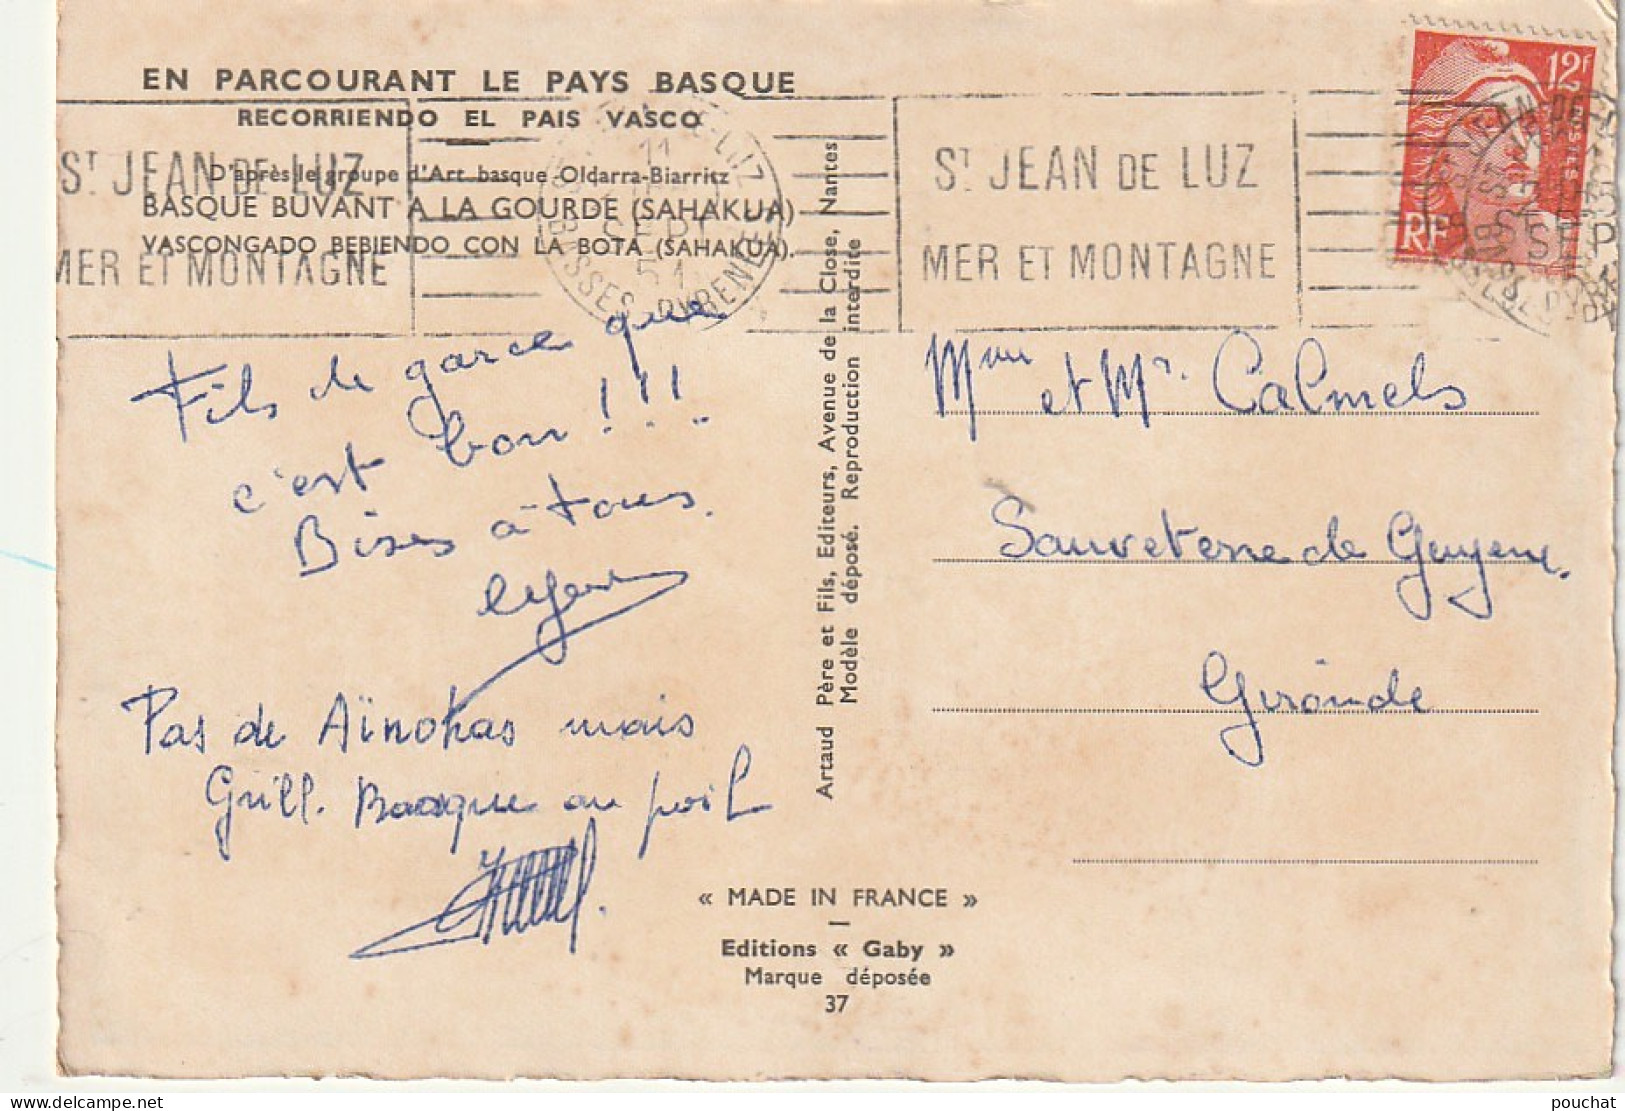 EN PARCOURANT LE PAYS BASQUE
RECORRIENDO EL PAIS VASCO
D'après le groupe d'Art basque Oldarra-Biarritz
BASQUE BUVANT A LA GOURDE (SAHAKUA)
VASCONGADO BEBIENDO CON LA BOTA (SAHAKUA).
ST JEAN DE LUZ
MER ET MONTAGNE
11
SEPT
51
BASSES PYRENEES
ST JEAN DE LUZ
MER ET MONTAGNE
12F
POSTES
RF
Fils de garce que
c'est bon!!!
Bises à tous.
Pas de Aïnohas mais
Grill. Basque au poil
Artaud Père et Fils, Editeurs, Avenue de la Close, Nantes
Modèle déposé. Reproduction interdite
Mme et Mr. Calmels
Sauveterre de Guyenne.
Gironde
« MADE IN FRANCE »
Editions « Gaby »
Marque déposée
37
pouchat